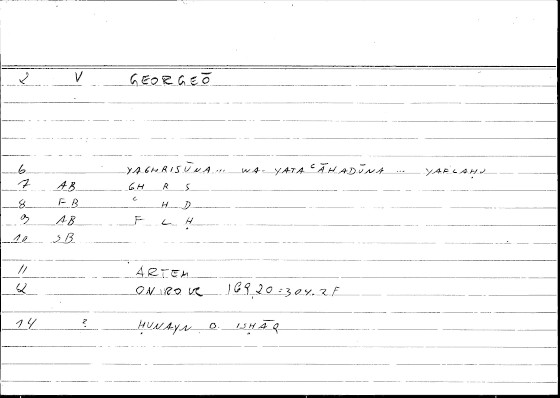 2 V GEORGEŌ
6 YAGHRISŪNA... WA YATAʿĀHADŪNA ... YAFLAḤU
7 AB GH R S
8 FB ʿ H D
9 AB F L Ḥ
10 SB
11 ARTEM
12 ONIROCR 169,20=304.2F
14 ? ḤUNAYN B. ISḤĀQ